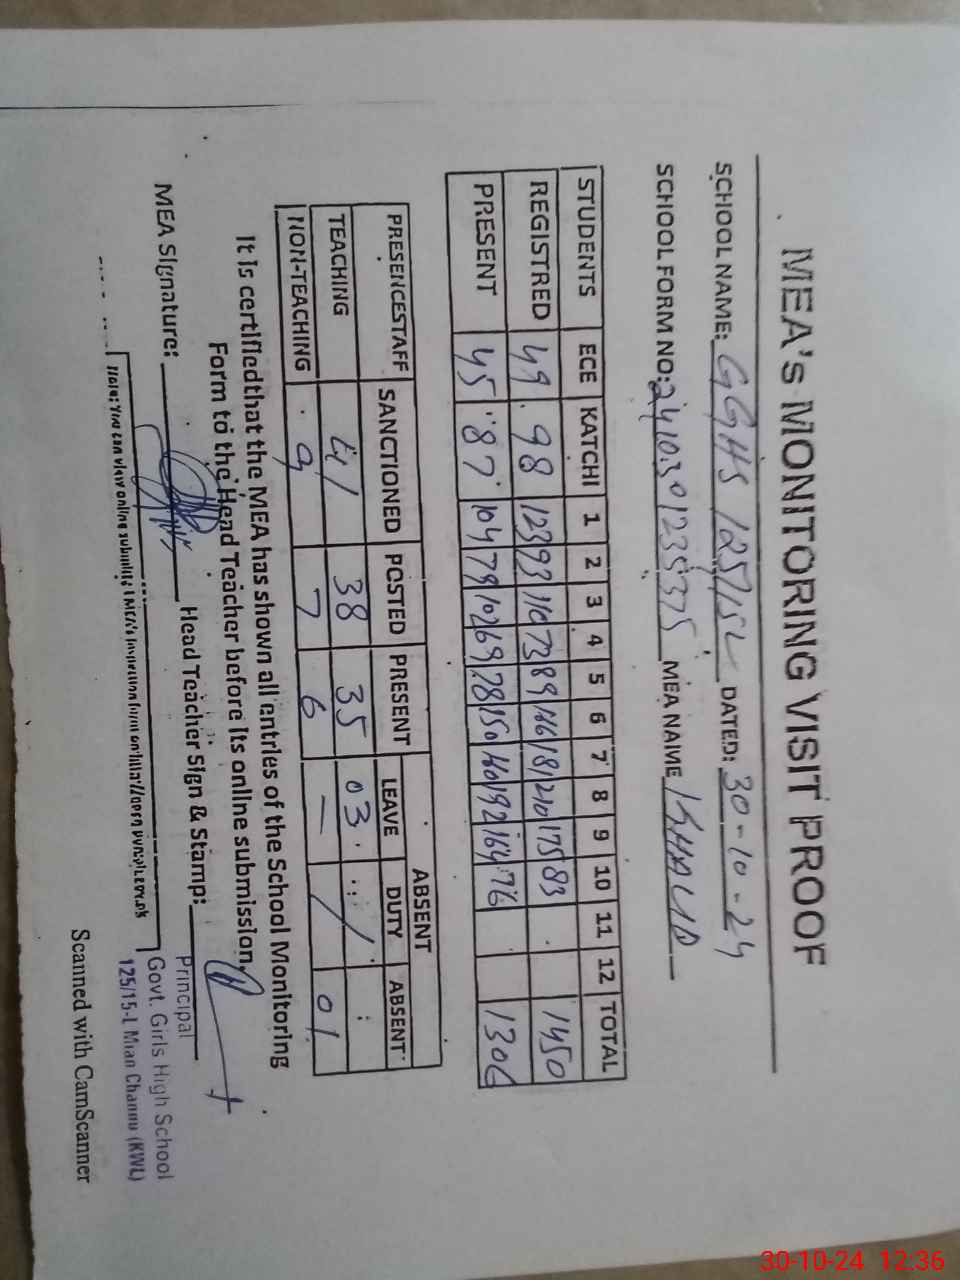 MEA's MONITORING VISIT PROOF
SCHOOL NAME: GGHS 125/15L DATED: 30-10-24
SCHOOL FORM NO: MEA NAME KHALID
STUDENTS ECE KATCHI 1 2 3 4 5 6 7 8 9 10 11 12 TOTAL
REGISTRED 49 98 123 93 110 73 89 166 181 210 175 83 1450
PRESENT 45 87 104 79 102 69 78 150 160 192 164 76 1306
PRESENCESTAFF SANCTIONED POSTED PRESENT ABSENT
LEAVE DUTY ABSENT
TEACHING 41 38 35 03 /
NON-TEACHING 9 7 6 — / 01
It is certified that the MEA has shown all entries of the School Monitoring
Form to the Head Teacher before its online submission.
MEA Signature: Head Teacher Sign & Stamp:
Principal
Govt. Girls High School
125/15-L Mian Channu (KWL)
Note: You can view online submitted MEA's Inspection form on
Scanned with CamScanner
30-10-24 12:36